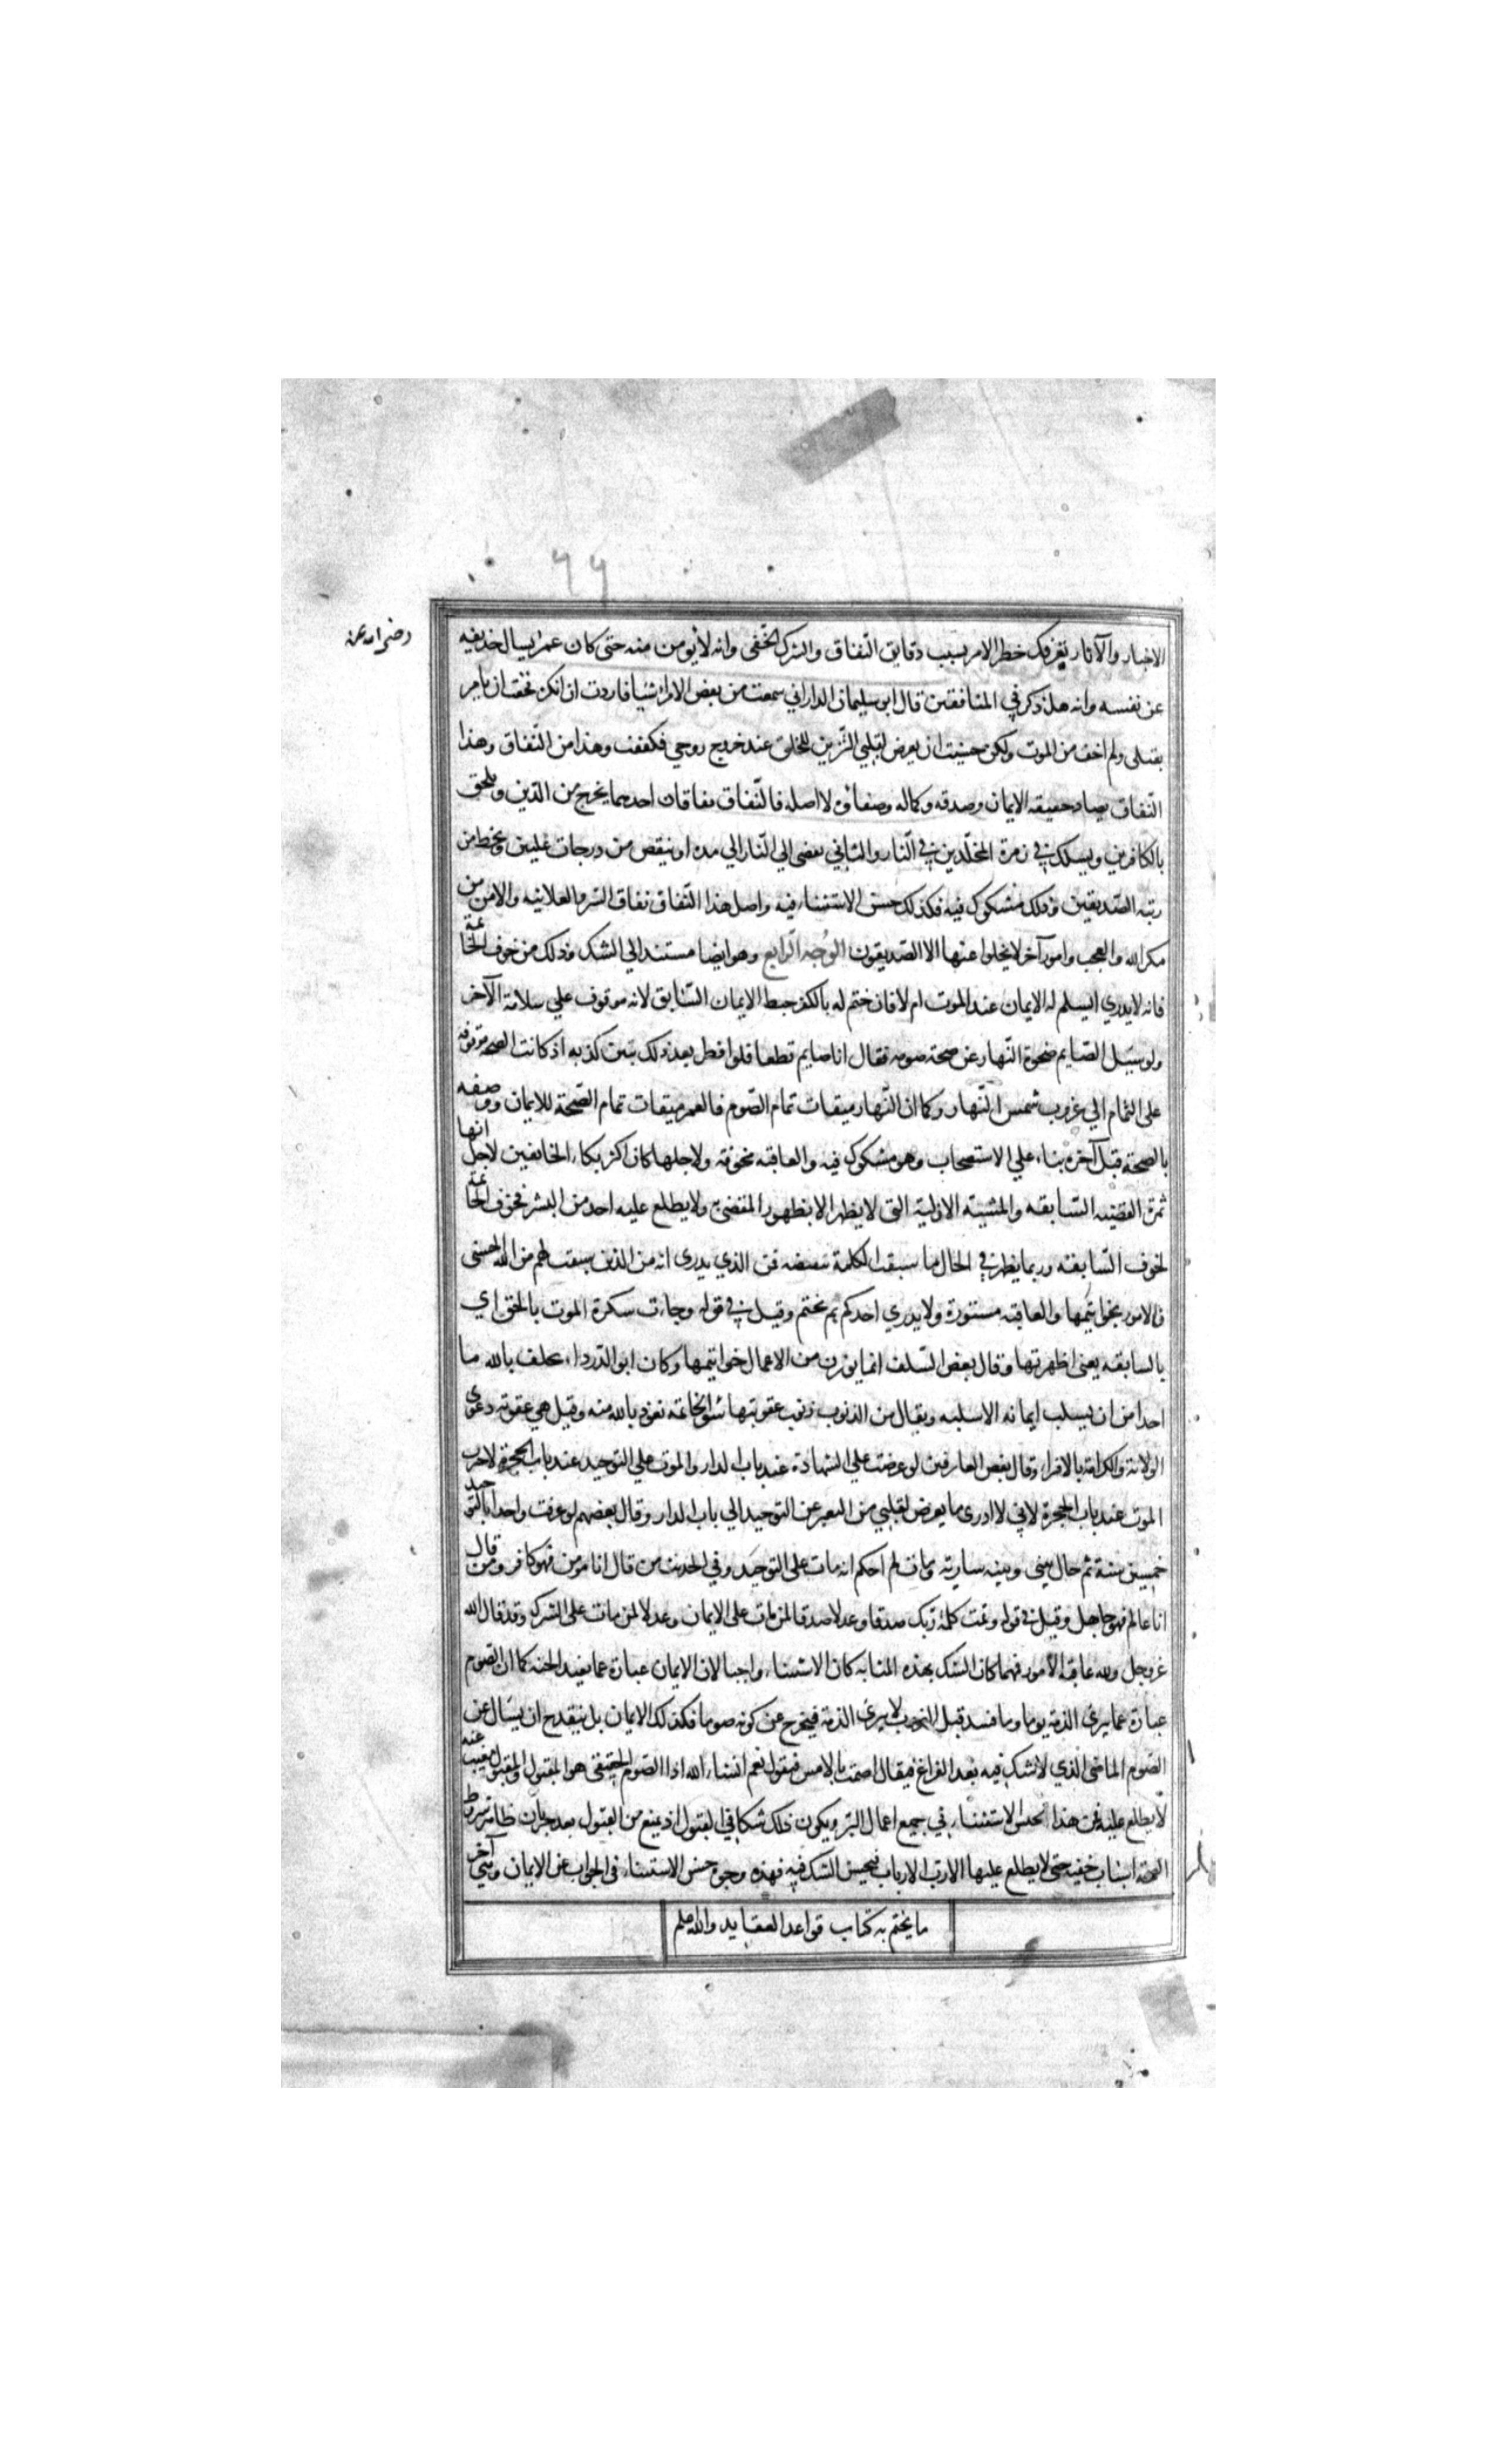 ٦٦
رضي الله عنه
الاخبار والآثار يعرفك خطر الامر بسبب دقايق النفاق والشرك الخفي وانه لا يومن منه حتى كان عمر يسال حذيفه
عن نفسه وانه هل ذكر في المنافقين قال ابو سليمان الداراني سمعت من بعض الامراء شيا فاردت ان انكر فخفت ان يامر
بقتلى ولم اخف من الموت ولكن خشيت ان يعرض لقلبي التزين للخلق عند خروج روحي فكففت وهذا من النفاق وهذا
النفاق يضاد حقيقه الايمان وصدقه وكماله وصفاؤه لا اصله فالنفاق نفاقان احدهما يخرج من الدين ويلحق
بالكافرين ويسلك في زمرة المخلدين في النار والثاني يفضى الى النار الي مده او ينقص من درجات عليين ويحط من
رتبه الصديقين وذلك مشكوك فيه فكذلك حسن الاستثناء فيه واصل هذا النفاق تفاوت السر والعلانيه والامن من
مكر الله والعجب وامور آخر لا يخلوا عنها الا الصديقون الوجه الرابع وهو ايضا مستند الي الشك وذلك من خوف الخاتمة
فانه لا يدري ايسلم له الايمان عند الموت ام لا فان ختم له بالكفر حبط الايمان السابق لانه موقوف علي سلامة الآخر
ولو سيل الصايم ضحوة النهار عن صحة صومه فقال انا صايم قطعا فلو افطر بعد ذلك تبين كذبه اذ كانت الصحه موقوفه
على التمام الي غروب شمس النهار وكما ان النهار ميقات تمام الصوم فالعمر ميقات تمام الصحة للايمان ووصفه
بالصحة قبل آخره بناء علي الاستصحاب وهو مشكوك فيه والعاقبه مخوفة ولاجلها كان اكثر بكاء الخايفين لاجل انها
ثمرة القضيه السابقه والمشيه الازلية التى لا يظهر الا بظهور المقضي ولا يطلع عليه احد من البشر فخوف الخاتمة
لخوف السابقه وربما يظهر في الحال ما سبقت الكلمة بنقيضه فمن الذي يدرى انه من الذين سبقت لهم من الله الحسنى
فالامور بخواتيمها والعاقبه مستورة ولا يدري احدكم بم يختم وقيل في قوله وجاءت سكرة الموت بالحق اي
بالسابقه يعنى اظهرتها وقال بعض السلف انما يوزن من الاعمال خواتيمها وكان ابو الدرداء يحلف بالله ما
احد امن ان يسلب ايمانه الا سلبه ويقال من الذنوب ذنوب عقوبتها سو الخاتمه نعوذ بالله منه وقيل هي عقوبه دعوى
الولاية والكرامة بالافتراء وقال بعض العارفين لو عرضت علي الشهادة عند باب الدار والموت علي التوحيد عند باب الحجرة لاخترت
الموت عند باب الحجرة لاني لا ادرى ما يعرض لقلبي من التغير عن التوحيد الي باب الدار وقال بعضهم لو عرفت واحدا بالتوحيد
خمسين سنة ثم حال بيني وبينه سارية ومات لم احكم انه مات على التوحيد وفي الحديث من قال انا مومن فهو كافر ومن قال
انا عالم فهو جاهل وقيل في قوله وتمت كلمة ربك صدقا وعدلا صدقا لمن مات على الايمان وعدلا لمن مات على الشرك وقد قال الله
عز وجل ولله عاقبة الامور فمهما كان الشك بهذه المثابه كان الاستثناء واجبا لان الايمان عبارة عما يفيد الجنه كما ان الصوم
عبارة عما يبرئ الذمة يوما وما فسد قبل الغروب لا يبرئ الذمة فيخرج عن كونه صوما فكذلك الايمان بل ينقدح ان يسال عن
الصوم الماضى الذي لا شك فيه بعد الفراغ فيقال اصمت بالامس فيقول نعم انشاء الله اذ الصوم الحقيقى هو المقبول والمقبول مغيب عنه
لا يطلع عليه فمن هذا حسن الاستثناء في جميع اعمال البر ويكون ذلك شكا في القبول اذ يمنع من القبول بعد جريان ظاهر شروط
الصحة اسباب خفيه حتى لا يطلع عليها الا رب الارباب فيحسن الشك فيه فهذه وجوه حسن الاستثناء في الجواب عن الايمان وهي آخر
ما يختم به كتاب قواعد العقايد والله اعلم